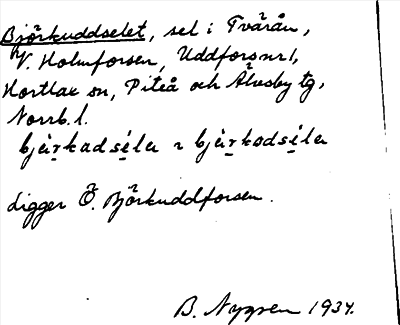 Björkuddselet, sel i Tvärån,
V. Holmforsen, Uddfors nr 1,
Hortlax sn, Piteå och Älvsby tg,
Norrb. l.
digger Ö. Björkuddforsen.
B. Nygren 1934.